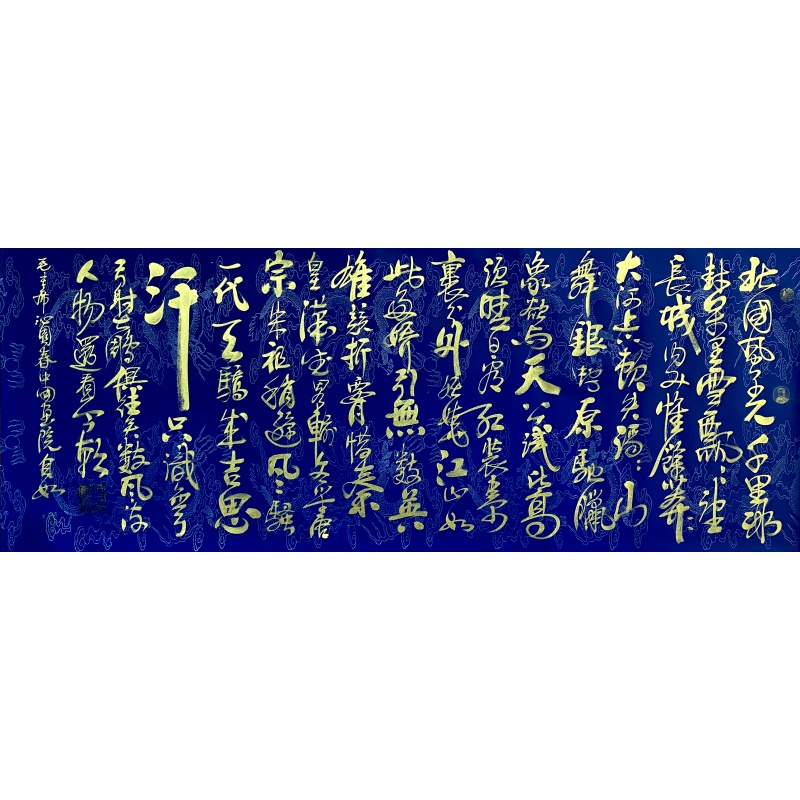 北國風光千里冰
封萬里雪飄望
長城内外惟餘莽莽
大河上下頓失滔滔山
舞銀蛇原馳臘
象欲與天公試比高
須晴日看紅裝素
裹分外妖嬈江山如
此多嬌引無數英
雄競折腰惜秦
皇漢武略輸文采唐
宗宋祖稍遜風騷
一代天驕成吉思
汗只識彎
弓射大鵰俱往矣數風流
人物還看今朝
毛主席沁園春中国畫院自如